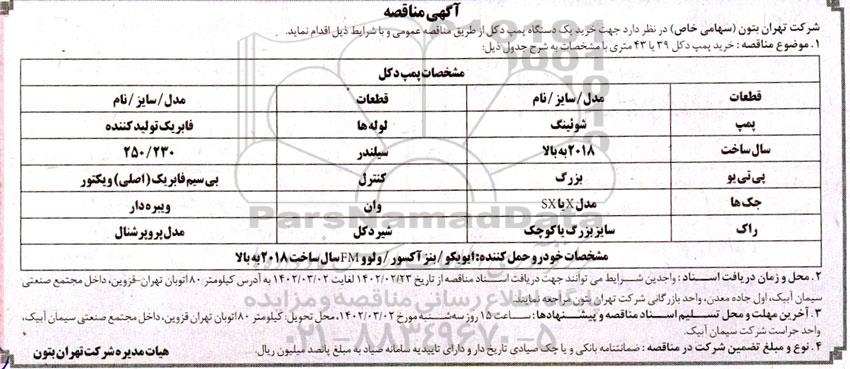 آگهی مناقصه
شرکت تهران بتون (سهامی خاص) در نظر دارد جهت خرید یک دستگاه پمپ دکل از طریق مناقصه عمومی و با شرایط ذیل اقدام نماید.
۱. موضوع مناقصه: خرید پمپ دکل ۳۹ یا ۴۳ متری با مشخصات به شرح جدول ذیل:
مشخصات پمپ دکل
قطعات مدل/سایز/نام قطعات مدل/سایز/نام
پمپ شوئینگ لوله‌ها فابریک تولید کننده
سال ساخت ۲۰۱۸ به بالا سیلندر ۲۵۰/۲۳۰
پی تی یو بزرگ کنترل بی سیم فابریک (اصلی) ویکتور
جک‌ها مدل X یا SX وان ویبره دار
راک سایز بزرگ یا کوچک شیر دکل مدل پروپرشنال
مشخصات خودرو حمل کننده: ایویکو/بنز آکسور/ولوو FM سال ساخت ۲۰۱۸ به بالا
۲. محل و زمان دریافت اسناد: واجدین شرایط می توانند جهت دریافت اسناد مناقصه از تاریخ ۱۴۰۲/۰۲/۲۳ لغایت ۱۴۰۲/۰۳/۰۲ به آدرس کیلومتر ۸۰ اتوبان تهران-قزوین، داخل مجتمع صنعتی
سیمان آبیک، اول جاده معدن، واحد بازرگانی شرکت تهران بتون مراجعه نمایند.
۳. آخرین مهلت و محل تسلیم اسناد مناقصه و پیشنهادها: ساعت ۱۵ روز سه‌شنبه مورخ ۱۴۰۲/۰۳/۰۲، محل تحویل: کیلومتر ۸۰ اتوبان تهران قزوین، داخل مجتمع صنعتی سیمان آبیک،
واحد حراست شرکت سیمان آبیک.
۴. نوع و مبلغ تضمین شرکت در مناقصه: ضمانتنامه بانکی و یا چک صیادی تاریخ دار و دارای تاییدیه سامانه صیاد به مبلغ پانصد میلیون ریال.
هیات مدیره شرکت تهران بتون
ParsNamadData
۰۲۱-۸۸۳۴۹۶۷۰-۵